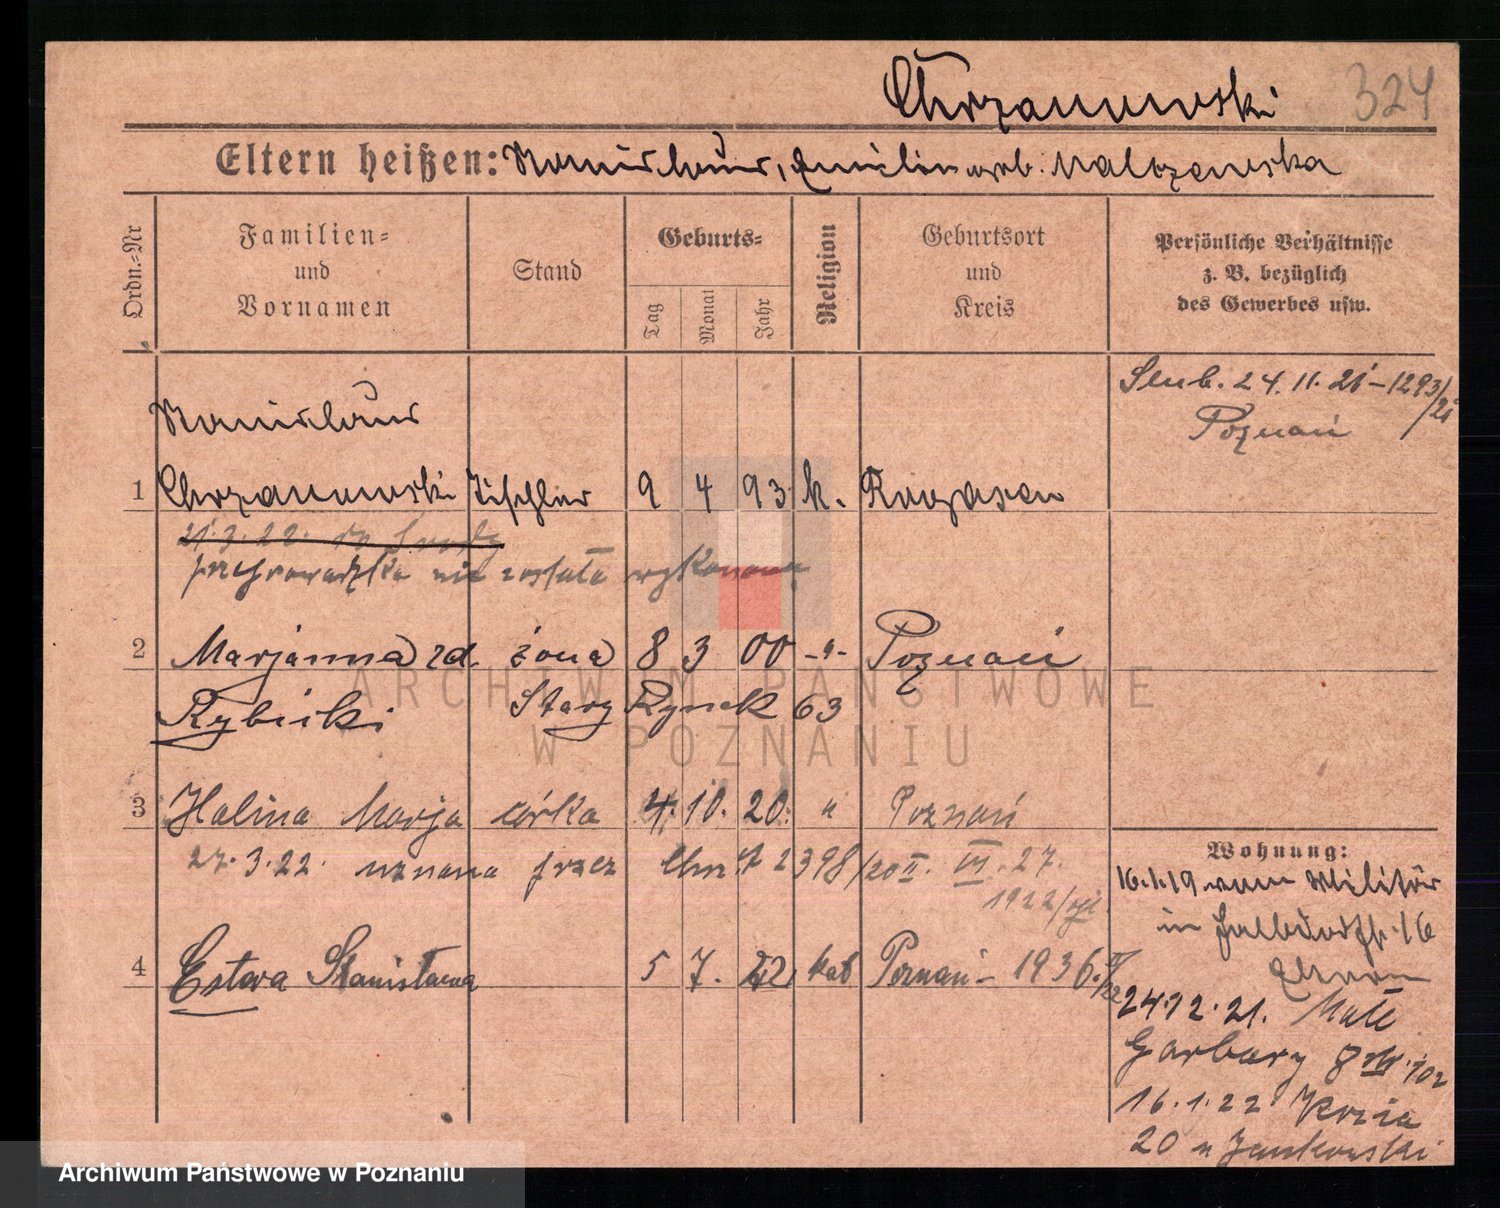 Chrzanowski 324
Eltern heißen: Stanislaus, Emilia geb. Malczewska
Ordn.=Nr
Familien=
und
Vornamen
Stand
Geburts=
Tag
Monat
Jahr
Religion
Geburtsort
und
Kreis
Persönliche Verhältnisse
z. B. bezüglich
des Gewerbes usw.
Ślub. 24.11.21 – 1293/21
Poznań
Stanislaus
1 Chrzanowski Tischler 9 4 93. k. Rogasen
21.3.22. do Środy
przeprowadzka nie została wykonana
2 Marjanna zd. żona 8 3 00 -"- Poznań
Rybicki Stary Rynek 63
3 Halina Marja córka 4. 10. 20. " Poznań
27.3.22. uznana przez 2398/20 II. 27.
1922
4 Estera Stanisława 5 7. 22 kat Poznań – 1936.
Wohnung:
16.1.19 vom Militär
in 16
24.12.21. Małe
Garbary 8
16.1.22
20 u Jankowski
ARCHIWUM PAŃSTWOWE
W POZNANIU
Archiwum Państwowe w Poznaniu